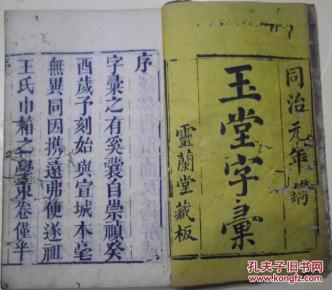 同治元年鐫
玉堂字彙
靈蘭堂藏板
序
字彙之有奚裳自崇禎癸
酉歲予刻始與宣城本毫
無異同因携遠弗便遂祖
王氏巾箱之學東卷僅半
孔夫子旧书网